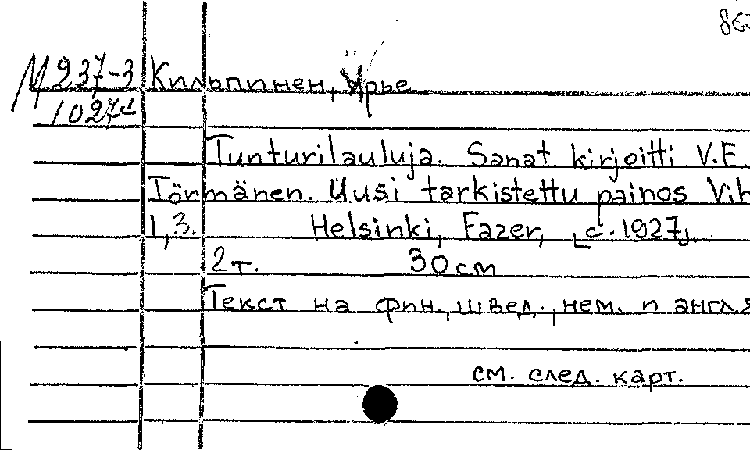 М237-3 Кильпинен, Ирье
1027
Tunturilauluja. Sanat kirjoitti V.E.
Törmänen. Uusi tarkistettu painos Vih
1,3. Helsinki, Fazer, [c.1927].
2 т. 30 см
Текст на фин., швед., нем. и англ.яз
см. след. карт.